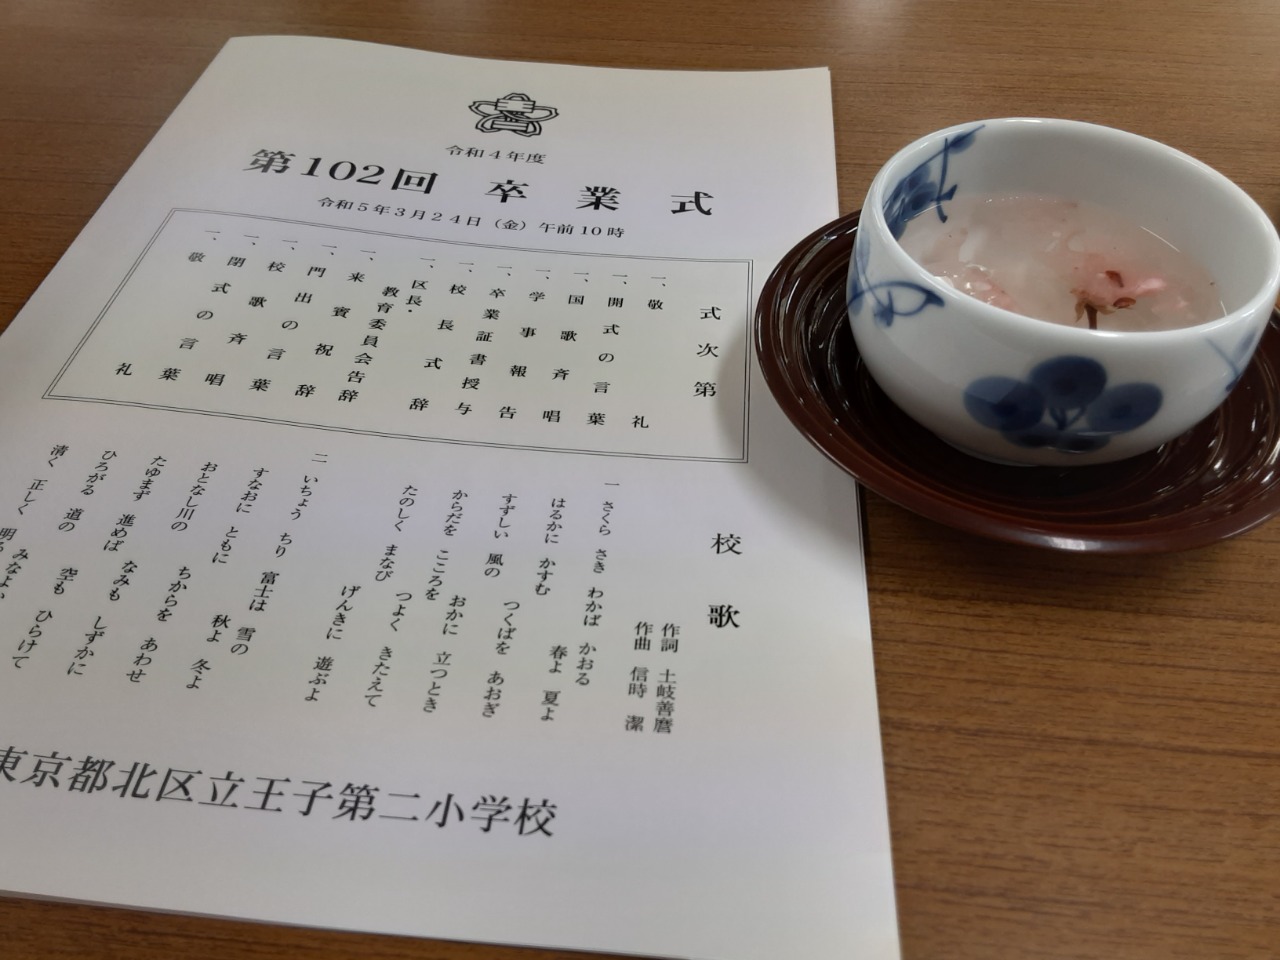 令和4年度
第102回 卒業式
令和5年3月24日（金）午前10時
式次第
一、敬礼
一、開式の言葉
一、国歌斉唱
一、学事報告
一、卒業証書授与
一、校長式辞
一、区長・教育委員会告辞
一、来賓祝辞
一、門出の言葉
一、校歌斉唱
一、閉式の言葉
一、敬礼
校歌
作詞 土岐善麿
作曲 信時 潔
一 さくら さき わかば かおる
はるかに かすむ 春よ 夏よ
すずしい 風の つくばを あおぎ
からだを こころを おかに 立つとき
たのしく まなび つよく きたえて
げんきに 遊ぶよ
二 いちょう ちり 富士は 雪の
すなおに ともに 秋よ 冬よ
おとなし川の ちからを あわせ
たゆまず 進めば なみも しずかに
ひろがる 道の 空も ひらけて
清く 正しく みなよい
東京都北区立王子第二小学校